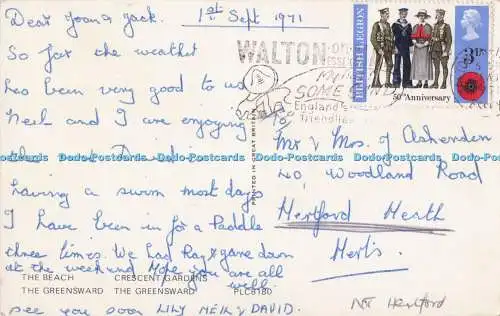 Dear Joan & Jack.
1st Sept 1971
So far the weather
has been very good to us
Neil and I are enjoying
having a swim most days
I have been in for a Paddle
three times. We had Ray & gave down
at the weekend Hope you are all
well.
see you soon LILY NEIL & DAVID.
THE BEACH CRESCENT GARDENS
THE GREENSWARD THE GREENSWARD PLC8180
PRINTED IN GREAT BRITAIN
WALTON-ON
ESSEX
SOME
England's
friendlies
BRITISH LEGION
50th Anniversary
3p
Mr & Mrs J Ashenden
40 Woodland Road
Hertford Heath
Herts.
Not Hertford
Dodo-Postcards Dodo-Postcards Dodo-Postcards Dodo-Postcards Dodo-Postcards Dodo-Postcards